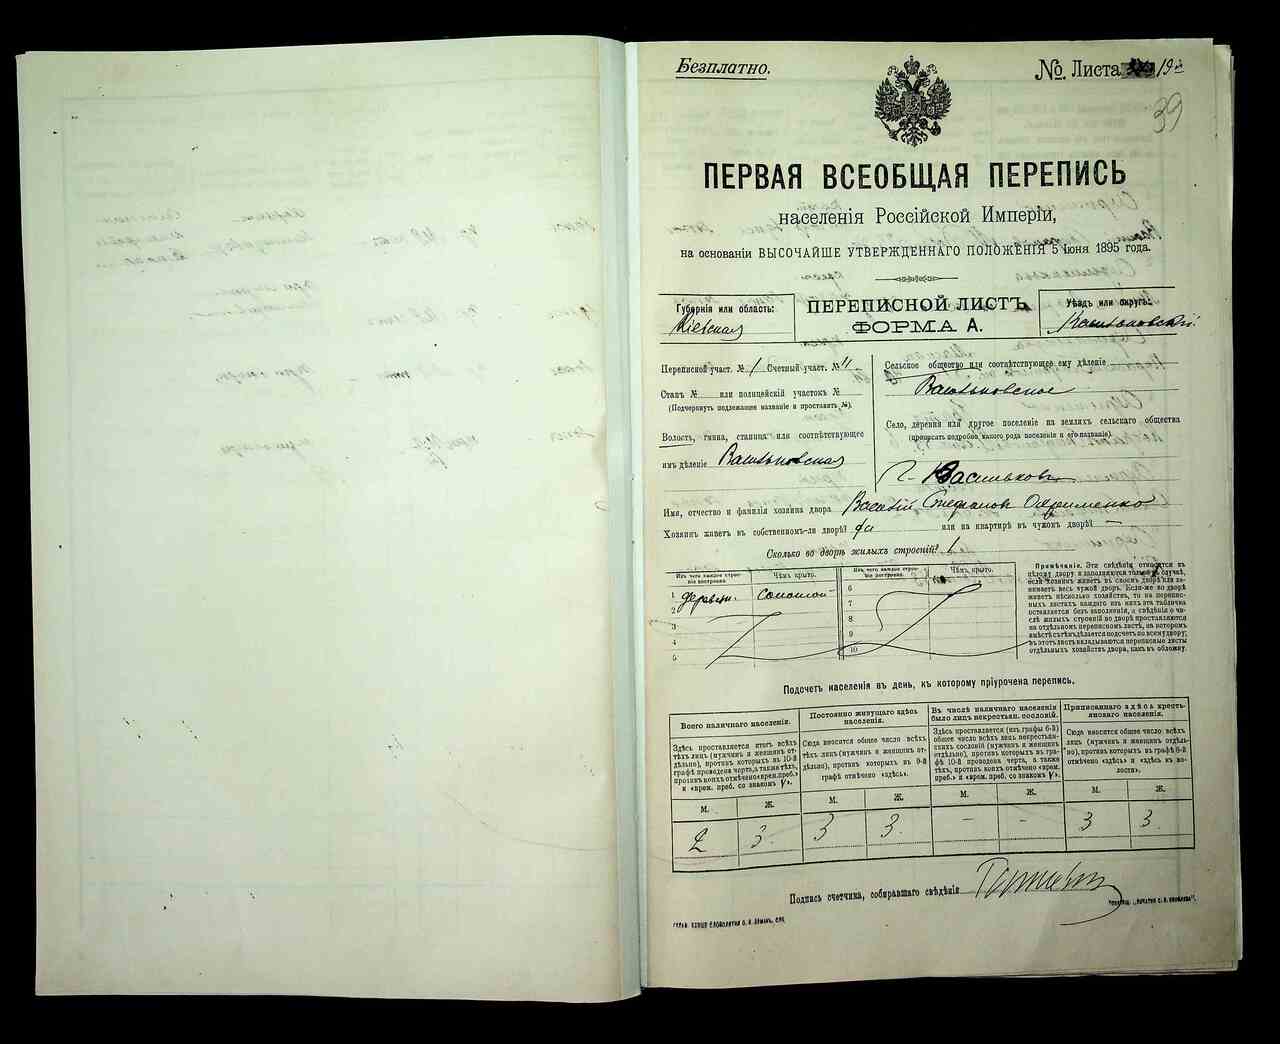 Безплатно.
№ Листа 19
39
ПЕРВАЯ ВСЕОБЩАЯ ПЕРЕПИСЬ
населенія Россійской Имперіи,
на основаніи ВЫСОЧАЙШЕ УТВЕРЖДЕННАГО ПОЛОЖЕНІЯ 5 Іюня 1895 года.
Губернія или область:
Кіевская
ПЕРЕПИСНОЙ ЛИСТЪ
ФОРМА А.
Уѣздъ или округъ:
Васильковскій
Переписной участ. № 1 Счетный участ. № 11
Станъ № или полицейскій участокъ №
(Подчеркнуть подлежащее названіе и проставить №).
Волость, гмина, станица или соотвѣтствующее
имъ дѣленіе Васильковская
Сельское общество или соотвѣтствующее ему дѣленіе
Васильковское
Село, деревня или другое поселеніе на земляхъ сельскаго общества
(прописать подробно, какого рода поселеніе и его названіе).
г. Васильковъ
Имя, отчество и фамилія хозяина двора Василій Стефановъ Охрименко
Хозяинъ живетъ въ собственномъ-ли дворѣ? да или на квартирѣ въ чужомъ дворѣ? —
Сколько во дворѣ жилыхъ строеній? 1
Изъ чего каждое строеніе построено.
Чѣмъ крыто.
1 деревян. соломой
2
3
4
5
Изъ чего каждое строеніе построено.
Чѣмъ крыто.
6
7
8
9
10
Примѣчаніе. Эти свѣдѣнія относятся къ
цѣлому двору и заполняются только въ случаѣ,
если хозяинъ живетъ въ своемъ дворѣ или занимаетъ
весь чужой дворъ. Если-же во дворѣ
живетъ нѣсколько хозяйствъ, то на переписныхъ
листахъ каждаго изъ нихъ эта табличка
оставляется безъ заполненія, а свѣдѣнія о числѣ
жилыхъ строеній во дворѣ проставляются
на отдѣльномъ переписномъ листѣ, на которомъ
вмѣстѣ съ тѣмъ дѣлается подсчетъ по всему двору;
въ этотъ листъ вкладываются переписные листы
отдѣльныхъ хозяйствъ двора, какъ въ обложку.
Подсчетъ населенія въ день, къ которому пріурочена перепись.
Всего наличнаго населенія.
Здѣсь проставляется итогъ всѣхъ
тѣхъ лицъ (мужчинъ и женщинъ отдѣльно),
противъ которыхъ въ 10-й
графѣ проведена черта, а также тѣхъ,
противъ коихъ отмѣчено «врем. преб.»
и «врем. преб. со знакомъ V».
М. Ж.
2 3
Постоянно живущаго здѣсь
населенія.
Сюда вносится общее число всѣхъ
тѣхъ лицъ (мужчинъ и женщинъ отдѣльно),
противъ которыхъ въ 9-й
графѣ отмѣчено «здѣсь».
М. Ж.
3 3
Въ числѣ наличнаго населенія
было лицъ некрестьян. сословій.
Здѣсь проставляется (изъ графы 6-й)
общее число всѣхъ лицъ некрестьянскихъ
сословій (мужчинъ и женщинъ
отдѣльно), противъ которыхъ въ графѣ
10-й проведена черта, а также
тѣхъ, противъ коихъ отмѣчено «врем.
преб.» и «врем. преб. со знакомъ V».
М. Ж.
— —
Приписаннаго здѣсь крестьянскаго
населенія.
Сюда вносится общее число всѣхъ
лицъ (мужчинъ и женщинъ отдѣльно),
противъ которыхъ въ графѣ 8-й
отмѣчено «здѣсь» и «здѣсь къ волости».
М. Ж.
3 3
Подпись счетчика, собиравшаго свѣдѣнія